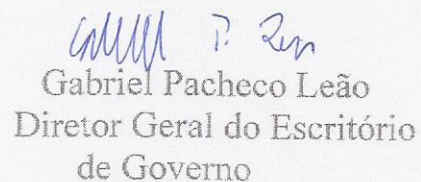 Gabriel Pacheco Leão
Diretor Geral do Escritório
de Governo